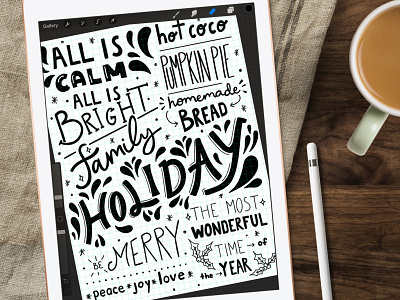 Gallery
ALL IS
CALM
ALL IS
BRIGHT
family
hot coco
PUMPKIN PIE
homemade
BREAD
HOLIDAY
BE
MERRY
peace • joy • love
THE MOST
WONDERFUL
TIME of
the YEAR